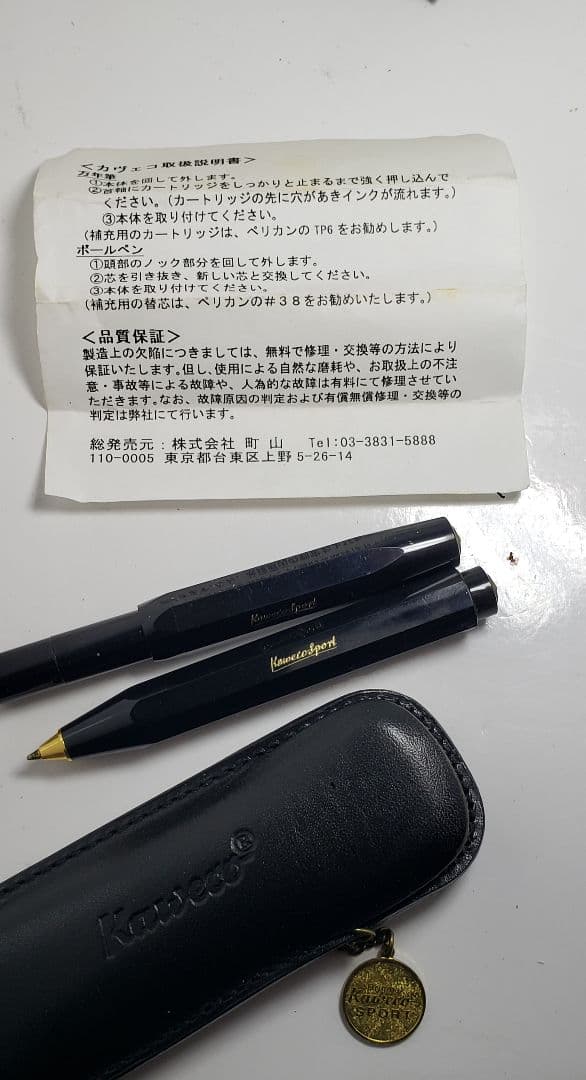 ＜カヴェコ取扱説明書＞
万年筆
①本体を回して外します。
②首軸にカートリッジをしっかりと止まるまで強く押し込んで
ください。(カートリッジの先に穴があきインクが流れます。)
③本体を取り付けてください。
(補充用のカートリッジは、ペリカンの TP6 をお勧めします。)
ボールペン
①頭部のノック部分を回して外します。
②芯を引き抜き、新しい芯と交換してください。
③本体を取り付けてください。
(補充用の替芯は、ペリカンの＃３８をお勧めいたします。)
＜品質保証＞
製造上の欠陥につきましては、無料で修理・交換等の方法により
保証いたします。但し、使用による自然な磨耗や、お取扱上の不注
意・事故等による故障や、人為的な故障は有料にて修理させてい
ただきます。なお、故障原因の判定および有償無償修理・交換等の
判定は弊社にて行います。
総発売元：株式会社 町 山 Tel:03-3831-5888
110-0005 東京都台東区上野 5-26-14
Kaweco Sport
Kaweco Sport
Kaweco®
Kaweco
SPORT